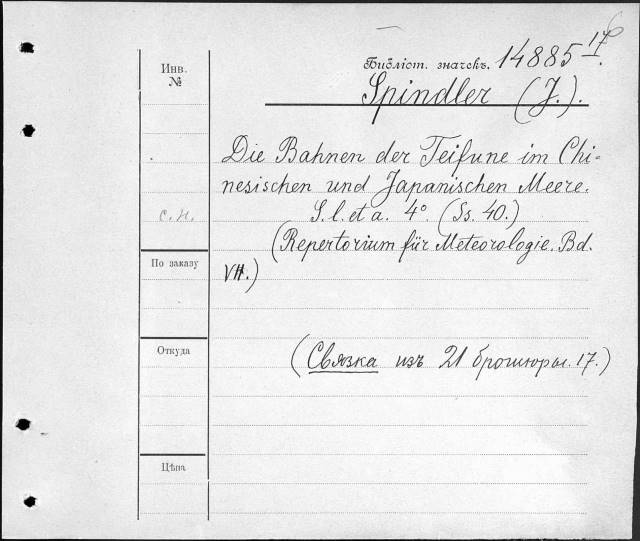 6
Инв.
№
Библіот. значекъ. 14885 17/I.
Spindler (J.).
Die Bahnen der Teifune im Chi-
nesischen und Japanischen Meere.
с.н. S. l. et a. 4° (Ss. 40.)
(Repertorium für Meteorologie. Bd.
VII.)
По заказу
Откуда
(Связка изъ 21 брошюры. 17.)
Цѣна